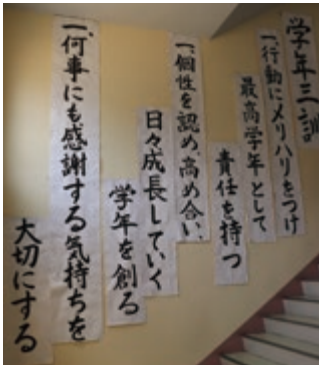 学年三訓
一、行動にメリハリをつけ
最高学年として
責任を持つ
一、個性を認め、高め合い、
日々成長していく
学年を創る
一、何事にも感謝する気持ちを
大切にする